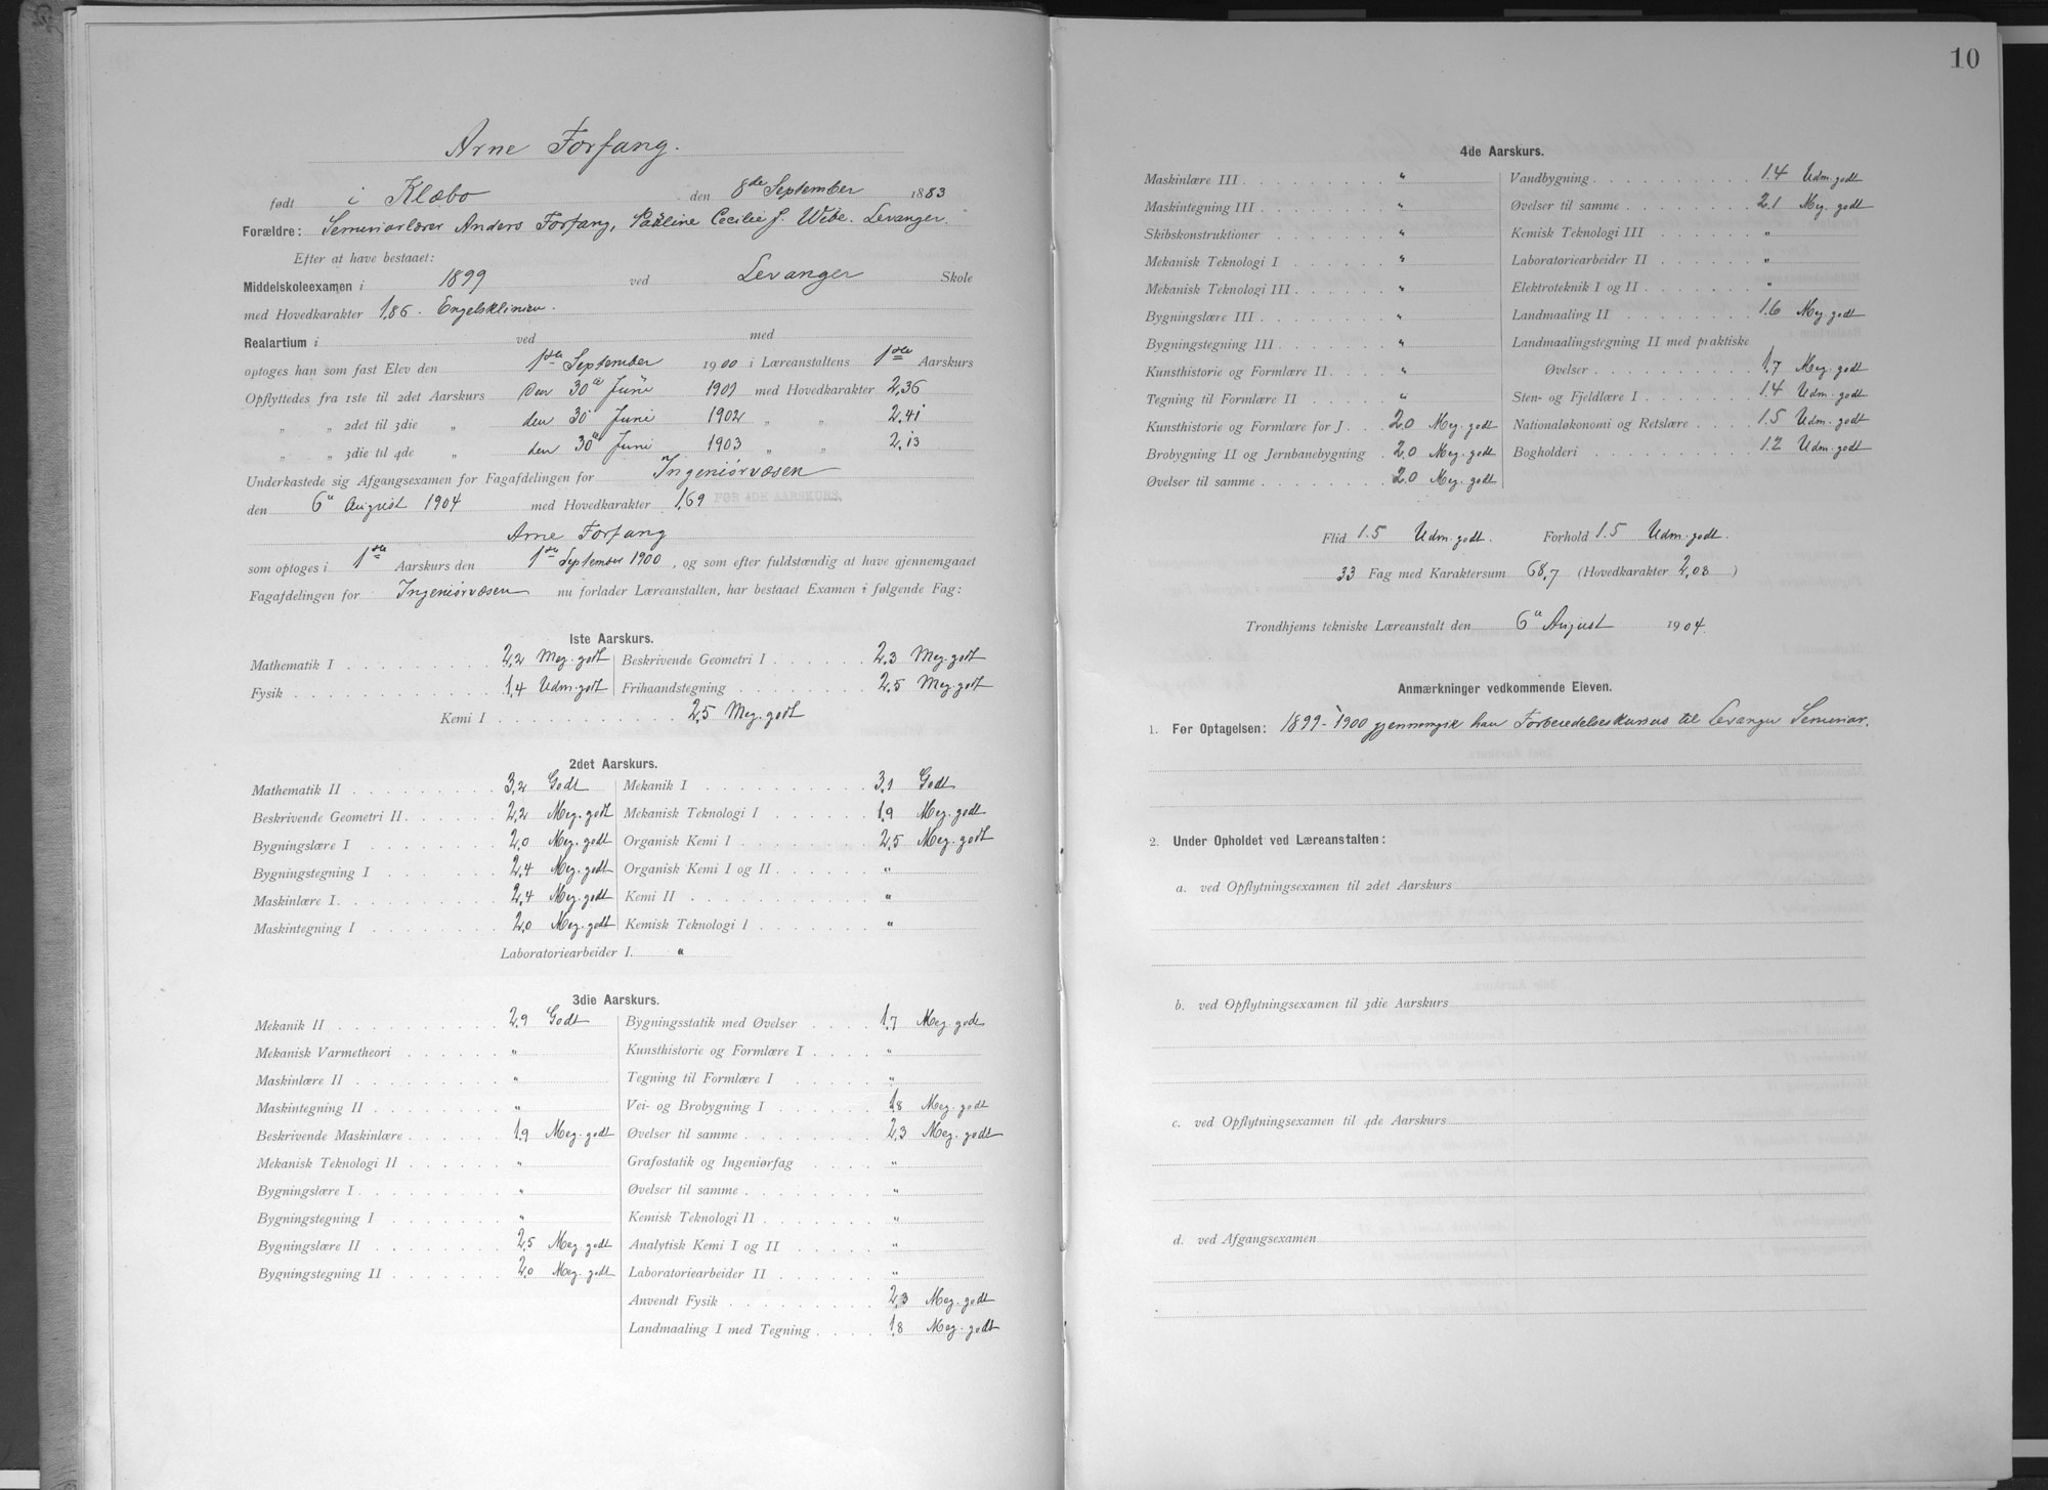 Arne Forfang.
født i Klæbo den 8de September 1883
Forældre: Seminarlærer Anders Forfang, Pauline Cecilie f. Wibe. Levanger.
Efter at have bestaaet:
Middelskoleexamen i 1899 ved Levanger Skole
med Hovedkarakter 1,86. Engelsklinien.
Realartium i ved med
optoges han som fast Elev den 1ste September 1900 i Læreanstaltens 1ste Aarskurs
Opflyttedes fra 1ste til 2det Aarskurs den 30te Juni 1901 med Hovedkarakter 2,36
„ „ 2det til 3die „ den 30 Juni 1902 „ „ 2,41
„ „ 3die til 4de „ den 30te Juni 1903 „ „ 2,13
Underkastede sig Afgangsexamen for Fagafdelingen for Ingeniørvæsen
den 6te August 1904 med Hovedkarakter 1,69 FOR 4DE AARSKURS.
Arne Forfang
som optoges i 1ste Aarskurs den 1ste September 1900, og som efter fuldstændig at have gjennemgaaet
Fagafdelingen for Ingeniørvæsen nu forlader Læreanstalten, har bestaaet Examen i følgende Fag:
1ste Aarskurs.
Mathematik I 2,2 Meg. godt Beskrivende Geometri I 2,3 Meg. godt
Fysik 1,4 Udm. godt Frihaandstegning 2,5 Meg. godt
Kemi I 2,5 Meg. godt
2det Aarskurs.
Mathematik II 3,2 Godt Mekanik I 3,1 Godt
Beskrivende Geometri II 2,2 Meg. godt Mekanisk Teknologi I 1,9 Meg. godt
Bygningslære I 2,0 Meg. godt Organisk Kemi I 2,5 Meg. godt
Bygningstegning I 2,4 Meg. godt Organisk Kemi I og II "
Maskinlære I 2,4 Meg. godt Kemi II "
Maskintegning I 2,0 Meg. godt Kemisk Teknologi I "
Laboratoriearbeider I. "
3die Aarskurs.
Mekanik II 2,9 Godt Bygningsstatik med Øvelser 1,7 Meg. godt
Mekanisk Varmetheori " Kunsthistorie og Formlære I "
Maskinlære II " Tegning til Formlære I "
Maskintegning II " Vei- og Brobygning I 1,8 Meg. godt
Beskrivende Maskinlære 1,9 Meg. godt Øvelser til samme 2,3 Meg. godt
Mekanisk Teknologi II " Grafostatik og Ingeniørfag "
Bygningslære I " Øvelser til samme "
Bygningstegning I " Kemisk Teknologi II "
Bygningslære II 2,5 Meg. godt Analytisk Kemi I og II "
Bygningstegning II 2,0 Meg. godt Laboratoriearbeider II "
Anvendt Fysik 2,3 Meg. godt
Landmaaling I med Tegning 1,8 Meg. godt
10
4de Aarskurs.
Maskinlære III " Vandbygning 1.4 Udm. godt
Maskintegning III " Øvelser til samme 2.1 Meg. godt
Skibskonstruktioner " Kemisk Teknologi III "
Mekanisk Teknologi I " Laboratoriearbeider II "
Mekanisk Teknologi III " Elektroteknik I og II "
Bygningslære III " Landmaaling II 1.6 Meg. godt
Bygningstegning III " Landmaalingstegning II med praktiske
Kunsthistorie og Formlære II " Øvelser 1.7 Meg. godt
Tegning til Formlære II " Sten- og Fjeldlære I 1.4 Udm. godt
Kunsthistorie og Formlære for J. 2.0 Meg. godt Nationaløkonomi og Retslære 1.5 Udm. godt
Brobygning II og Jernbanebygning 2.0 Meg. godt Bogholderi 1.2 Udm. godt
Øvelser til samme 2.0 Meg. godt
Flid 1.5 Udm. godt. Forhold 1.5 Udm. godt.
33 Fag med Karaktersum 68,7 (Hovedkarakter 2,08 )
Trondhjems tekniske Læreanstalt den 6te August 1904.
Anmærkninger vedkommende Eleven.
1. Før Optagelsen: 1899-1900 gjennemgik han Forberedelseskursus til Levanger Seminar.
2. Under Opholdet ved Læreanstalten:
a. ved Opflytningsexamen til 2det Aarskurs
b. ved Opflytningsexamen til 3die Aarskurs
c. ved Opflytningsexamen til 4de Aarskurs
d. ved Afgangsexamen